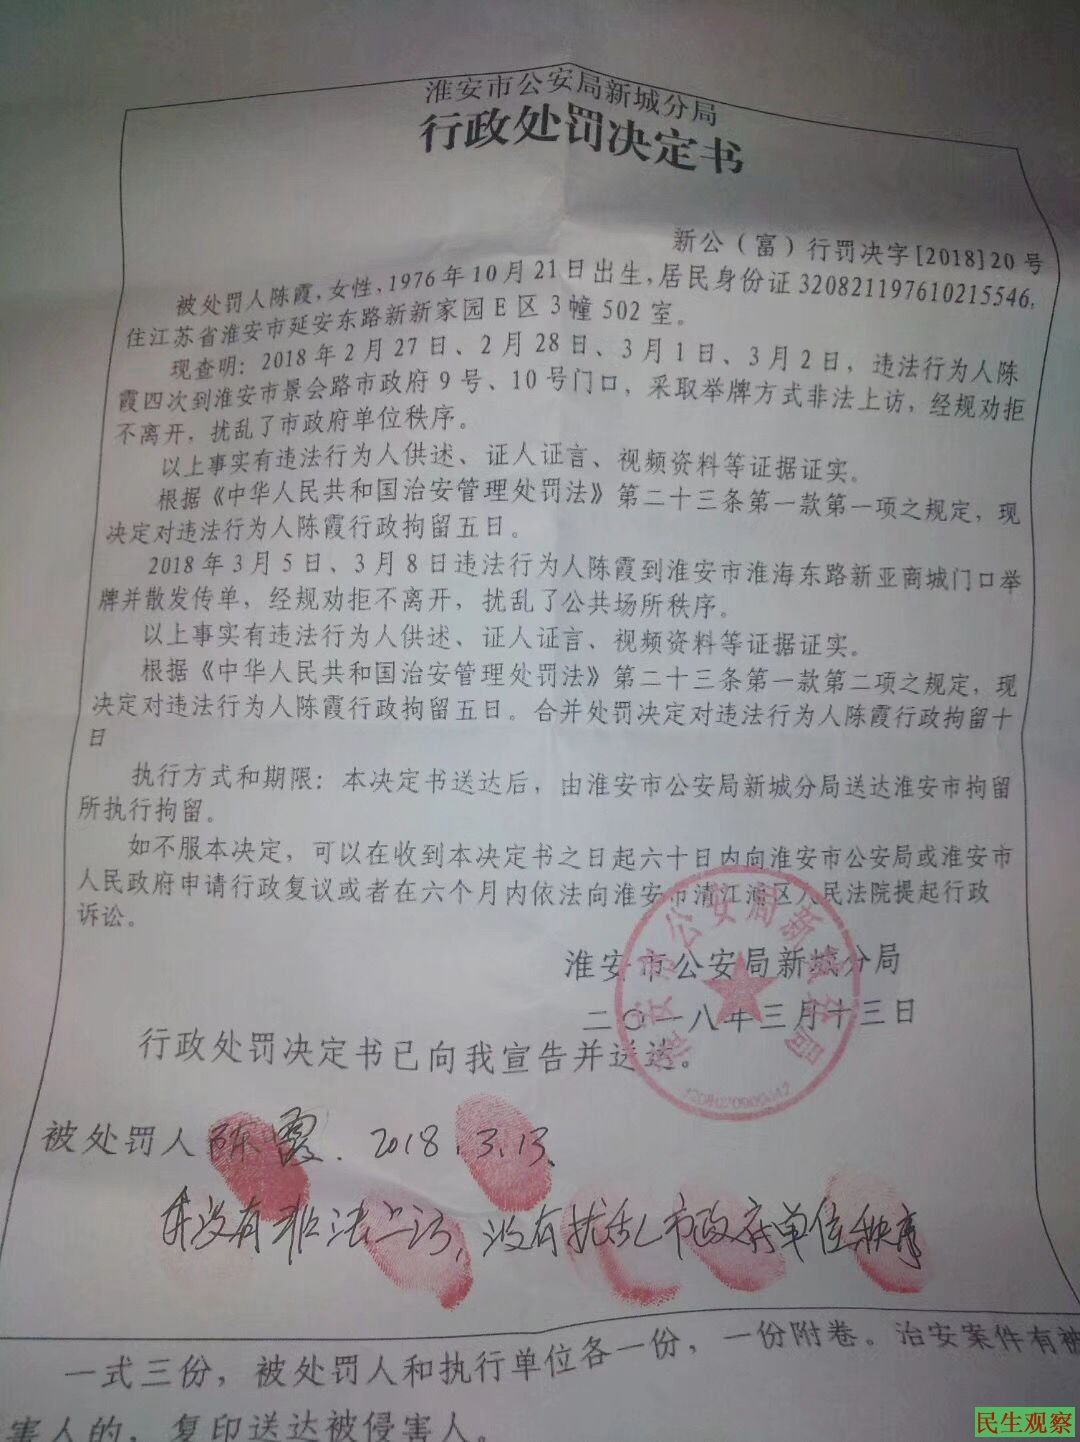 淮安市公安局新城分局
行政处罚决定书
新公（富）行罚决字[2018]20号
被处罚人陈霞，女性，1976年10月21日出生，居民身份证320821197610215546，
住江苏省淮安市延安东路新新家园E区3幢502室。
现查明：2018年2月27日、2月28日、3月1日、3月2日，违法行为人陈
霞四次到淮安市景会路市政府9号、10号门口，采取举牌方式非法上访，经规劝拒
不离开，扰乱了市政府单位秩序。
以上事实有违法行为人供述、证人证言、视频资料等证据证实。
根据《中华人民共和国治安管理处罚法》第二十三条第一款第一项之规定，现
决定对违法行为人陈霞行政拘留五日。
2018年3月5日、3月8日违法行为人陈霞到淮安市淮海东路新亚商城门口举
牌并散发传单，经规劝拒不离开，扰乱了公共场所秩序。
以上事实有违法行为人供述、证人证言、视频资料等证据证实。
根据《中华人民共和国治安管理处罚法》第二十三条第一款第二项之规定，现
决定对违法行为人陈霞行政拘留五日。合并处罚决定对违法行为人陈霞行政拘留十
日
执行方式和期限：本决定书送达后，由淮安市公安局新城分局送达淮安市拘留
所执行拘留。
如不服本决定，可以在收到本决定书之日起六十日内向淮安市公安局或淮安市
人民政府申请行政复议或者在六个月内依法向淮安市清江浦区人民法院提起行政
诉讼。
淮安市公安局新城分局
二〇一八年三月十三日
淮安市公安局新城分局
行政处罚决定书已向我宣告并送达。
被处罚人陈霞.2018.3.13.
没有非法上访，没有扰乱市政府单位秩序
一式三份，被处罚人和执行单位各一份，一份附卷。治安案件有被
害人的，复印送达被侵害人。
民生观察